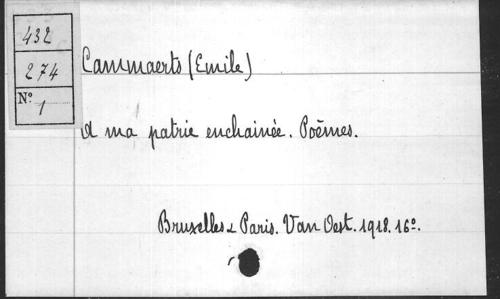 432
274
N° 1
Cammaerts (Emile)
A ma patrie enchainée. Poëmes.
Bruxelles & Paris. Van Oest. 1918. 16°.